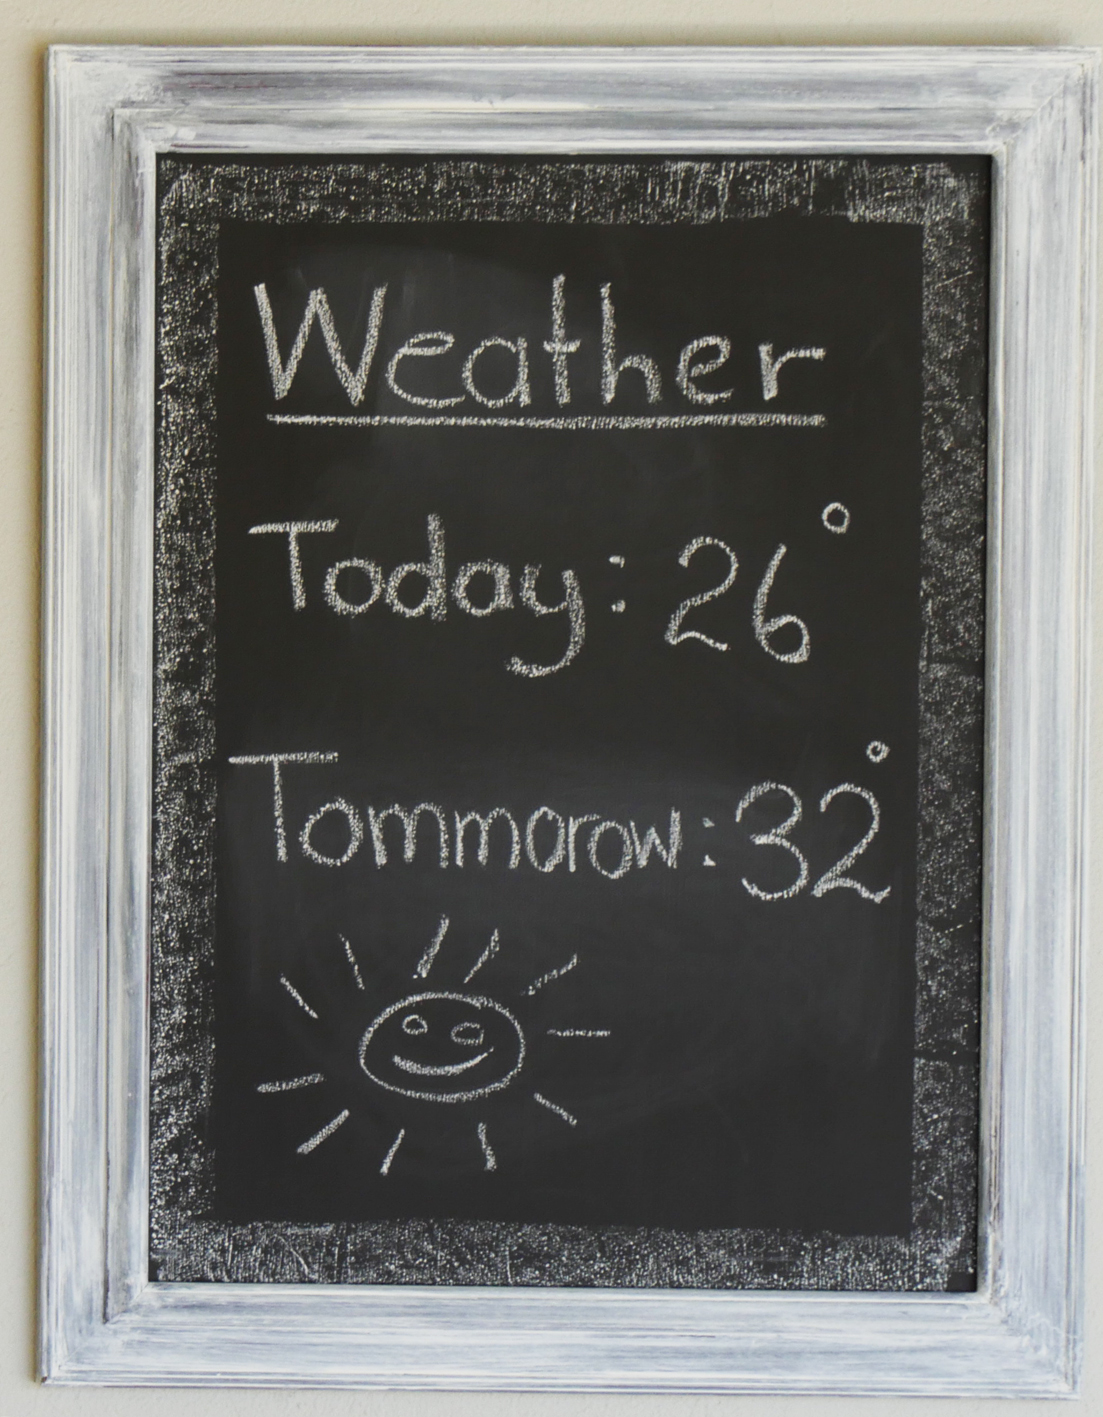 Weather
Today: 26°
Tommorow: 32°